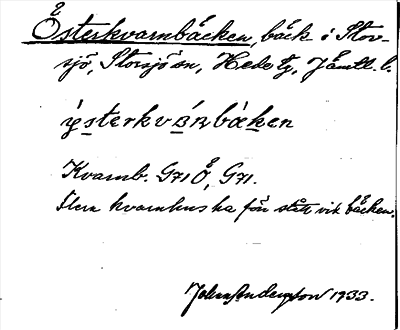 Österkvarnbäcken, bäck i Stor-
sjö, Storsjö sn, Hede tg, Jämtl. l.
ýsterkvárnbäken
Kvarnb. G71 Ö, G71.
Flera kvarnhus ha förr stått vid bäcken.
Johan Anderson 1933.